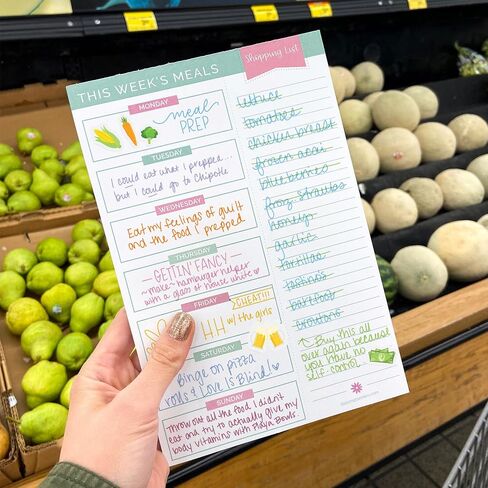 THIS WEEK'S MEALS
MONDAY
meal
PREP
TUESDAY
I could eat what I prepped...
but I could go to Chipotle
WEDNESDAY
Eat my feelings of guilt
and the food I prepped
THURSDAY
— GETTIN' FANCY —
~ make ~ hamburger helper
with a glass of house white
FRIDAY
CHEAT!!!
HH w/ the girls
SATURDAY
Binge on pizza
rolls & Love Is Blind!
SUNDAY
Throw out all the food I didn't
eat and try to actually give my
body vitamins with Playa Bowls.
Shopping List
lettuce
tomatoes
chicken breast
frozen acai
blueberries
froz. strawbs
honey
garlic
tortillas
croutons
Buy this all
over again because
you have no
self-control